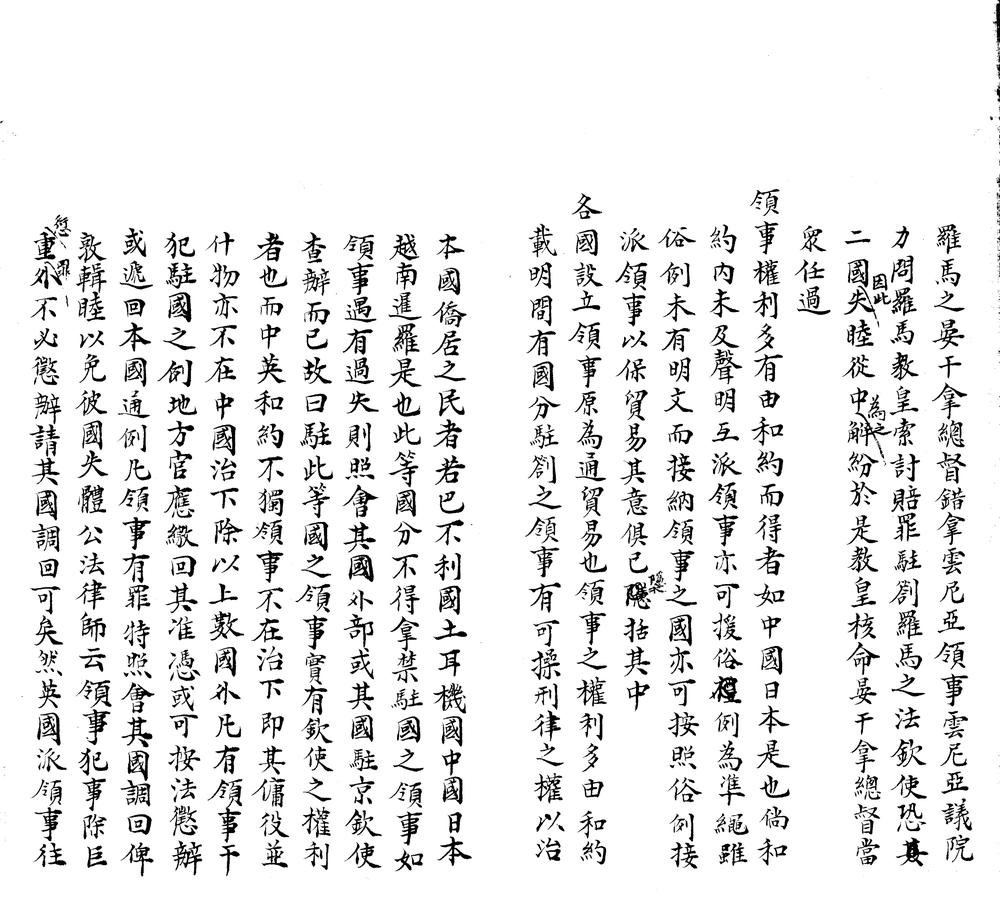 羅馬之晏干拿總督錯拿雲尼亞領事雲尼亞議院
力問羅馬教皇索討賠罪駐劄羅馬之法欽使恐其
二國因此失睦從中為之解紛於是教皇核命晏干拿總督當
眾任過
領事權利多有由和約而得者如中國日本是也倘和
約內未及聲明互派領事亦可援俗例為準繩雖
俗例未有明文而接納領事之國亦可按照俗例接
派領事以保貿易其意俱已隱括其中
各國設立領事原為通貿易也領事之權利多由和約
載明間有國分駐劄之領事有可操刑律之權以治
本國僑居之民者若巴不利國土耳機國中國日本
越南暹羅是也此等國分不得拿禁駐國之領事如
領事遇有過失則照會其國外部或其國駐京欽使
查辦而已故曰駐此等國之領事實有欽使之權利
者也而中英和約不獨領事不在治下即其傭役並
什物亦不在中國治下除以上數國外凡有領事干
犯駐國之例地方官應繳回其准憑或可按法懲辦
或遞回本國通例凡領事有罪特照會其國調回俾
敦輯睦以免彼國失體公法律師云領事犯事除巨
愆重罪外不必懲辦請其國調回可矣然英國派領事往